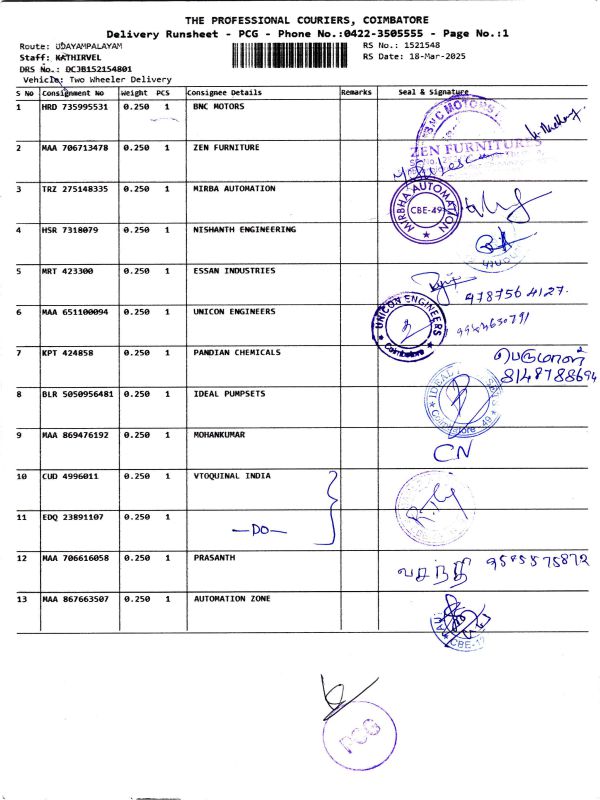 THE PROFESSIONAL COURIERS, COIMBATORE
Delivery Runsheet - PCG - Phone No.:0422-3505555 - Page No.:1
Route: UDAYAMPALAYAM
RS No.: 1521548
Staff: KATHIRVEL
RS Date: 18-Mar-2025
DRS No.: DCJB152154801
Vehicle: Two Wheeler Delivery
S No Consignment No Weight PCS Consignee Details Remarks Seal & Signature
1 HRD 735995531 0.250 1 BNC MOTORS
BNC MOTORS
2 MAA 706713478 0.250 1 ZEN FURNITURE
ZEN FURNITURES
3 TRZ 275148335 0.250 1 MIRBA AUTOMATION
MIRBHA AUTOMATION
CBE-49
4 HSR 7318079 0.250 1 NISHANTH ENGINEERING
5 MRT 423300 0.250 1 ESSAN INDUSTRIES
478756 4127.
6 MAA 651100094 0.250 1 UNICON ENGINEERS
UNICON ENGINEERS
Coimbatore
9943630791
7 KPT 424858 0.250 1 PANDIAN CHEMICALS
பெருமாள்
8148788694
8 BLR 5050956481 0.250 1 IDEAL PUMPSETS
IDEAL
Coimbatore 49
9 MAA 869476192 0.250 1 MOHANKUMAR
CN
10 CUD 4996011 0.250 1 VTOQUINAL INDIA
11 EDQ 23891107 0.250 1 —DO—
12 MAA 706616058 0.250 1 PRASANTH
வசந்தி 9585575872
13 MAA 867663507 0.250 1 AUTOMATION ZONE
PCG